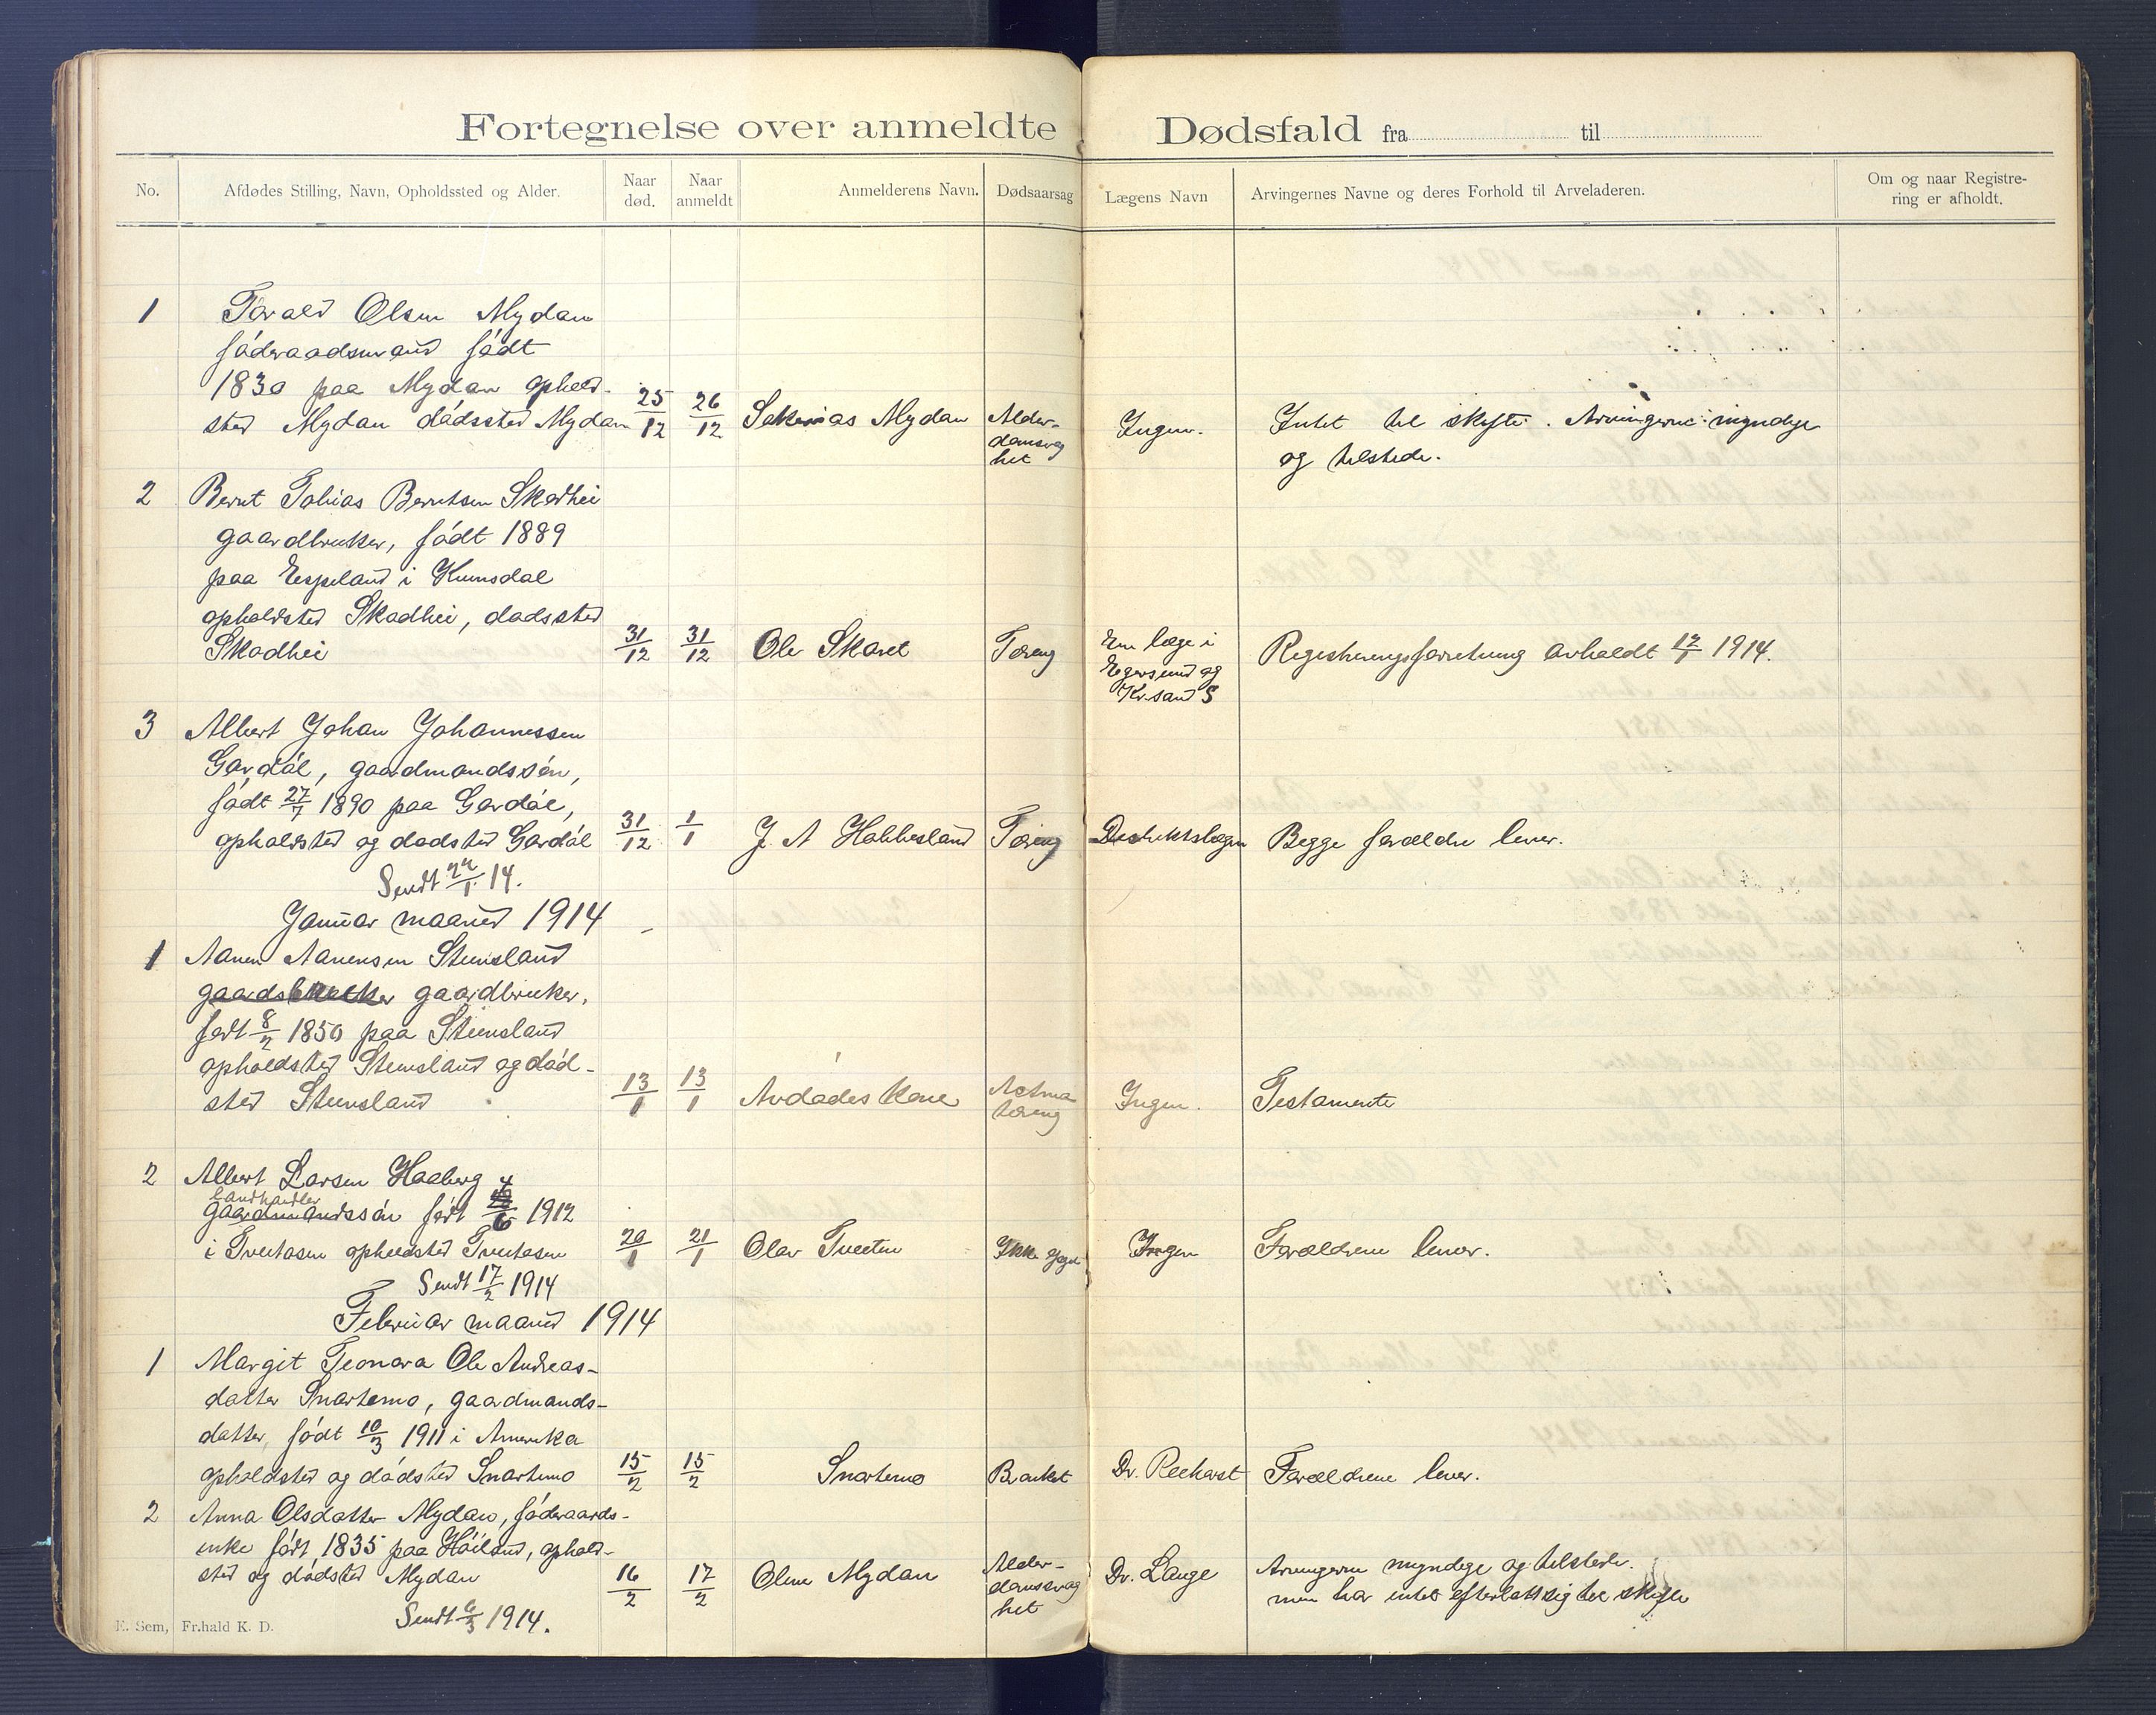 Fortegnelse over anmeldte Dødsfald fra til
No.
Afdødes Stilling, Navn, Opholdssted og Alder.
Naar død.
Naar anmeldt
Anmelderens Navn.
Dødsaarsag
Lægens Navn
Arvingernes Navne og deres Forhold til Arveladeren.
Om og naar Registrering er afholdt.
1 Torald Olsen Mydan
føderaadsmand født
1830 paa Mydan ophold-
sted Mydan dødssted Mydan 25/12 26/12 Sakarias Mydan Alder- Ingen. Intet til skifte. Arvingerne myndige
domssvag og tilstede.
het
2 Bernt Tobias Berntsen Skadhei
gaardbruker, født 1889
paa Espeland i Kvinesdal
opholdsted Skadhei, dødssted
Skadhei 31/12 31/12 Ole Skaret Tæring En læge i Registreringsforretning avholdt 12/1 1914.
Egersund og
Kr.sand S
3 Albert Johan Johannessen
Gardøl, gaardmandssøn,
født 27/7 1890 paa Gardøl,
opholdsted og dødsted Gardøl 31/12 1/1 J. A Hobbesland Tæring Distriktslægen Begge forældre lever.
Sendt 24/1 14.
Januar maaned 1914
1 Aanen Aanensen Steensland
gaardbruker,
født 8/2 1850 paa Steensland
opholdsted Steensland og død-
sted Steensland 13/1 13/1 Avdødes kone Astma Ingen. Testamente
tæring
2 Albert Larsen Haaberg
landhandler
gaardmandssøn født 4/6 1912
i Tveitaasen opholdsted Tveitaasen 20/1 21/1 Olav Tveiten Ikke opgit Ingen Forældrene lever.
Sendt 17/2 1914
Februar maaned 1914
1 Margit Teonora Ole Andreas-
datter Snartemo, gaardmands-
datter, født 10/3 1911 i Amerika
opholdsted og dødsted Snartemo 15/2 15/2 Snartemo Bronkit Dr. Forældrene lever.
2 Anna Olsdatter Mydan, føderaads-
enke født 1835 paa Høiland, ophold-
sted og dødsted Mydan 16/2 17/2 Oline Mydan Alder- Dr. Lange Arvingerne myndige og tilstede.
domssvag men har intet efterlatt sig til skifte
het
Sendt 6/3 1914.
E. Sem, Fr.hald K. D.